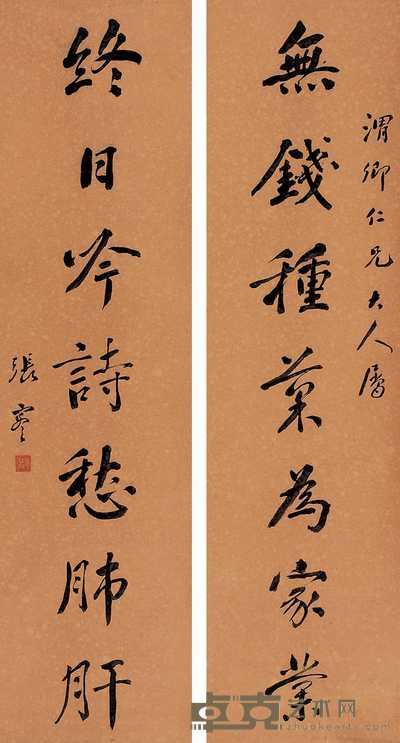 渭卿仁兄大人屬
無錢種菜為家業
終日吟詩愁肺肝
張謇
卓克艺术网